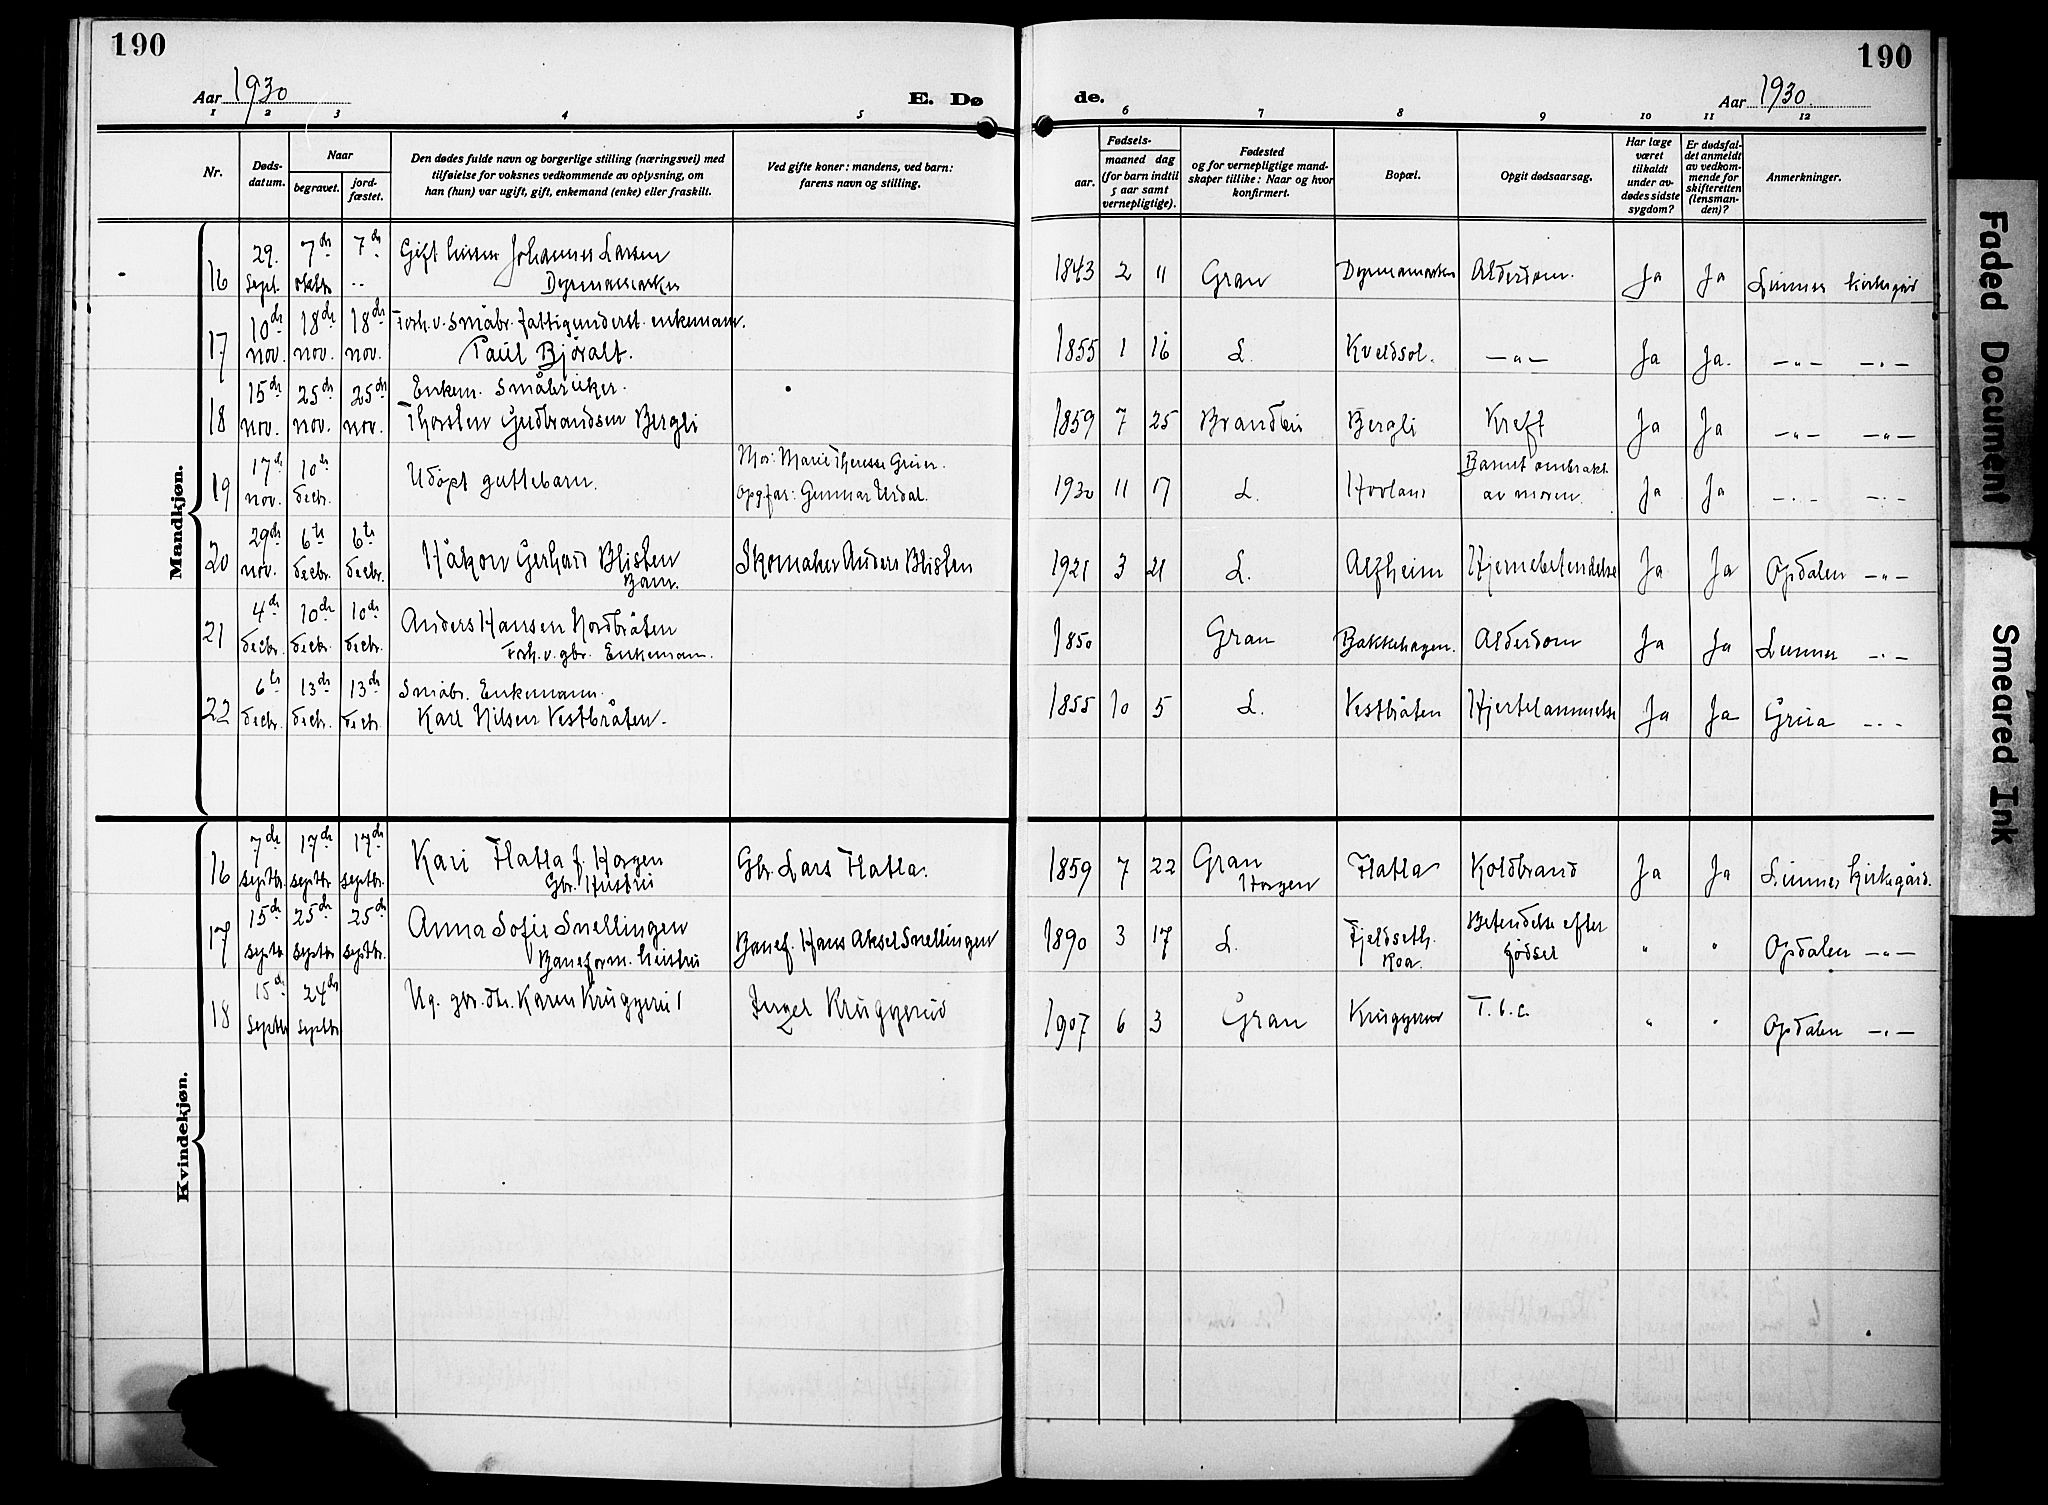 190
190
Aar 1930
E. Dø
de.
Aar 1930.
1 2 3 4 5 6 7 8 9 10 11 12
Nr.
Døds-
datum.
Naar
begravet.
jord-
fæstet.
Den dødes fulde navn og borgerlige stilling (næringsvei) med
tilføielse for voksnes vedkommende av oplysning, om
han (hun) var ugift, gift, enkemand (enke) eller fraskilt.
Ved gifte koner: mandens, ved barn:
farens navn og stilling.
Fødsels-
aar.
maaned dag
(for barn indtil
5 aar samt
vernepligtige).
Fødested
og for vernepligtige mand-
skaper tillike: Naar og hvor
konfirmert.
Bopæl.
Opgit dødsaarsag.
Har læge
været
tilkaldt
under av-
dødes sidste
sygdom?
Er dødsfal-
det anmeldt
av vedkom-
mende for
skifteretten
(lensman-
den)?
Anmerkninger.
Mandkjøn.
16 29. Sept. 7de oktbr. 7de Gift Johannes Larsen 1843 2 11 Gran Alderdom. Ja Ja Lunner kirkegård
17 10de nov. 18de nov. 18de nov. Forh.v. Småbr. fattigunderst. enkemann.
Paul Björalt. 1855 1 16 L. Kveldsol. —„— Ja Ja. —„— —„—
18 15de nov. 25de nov. 25de nov. Enkem. Småbruker.
Thorsten Gudbrandsen Bergli 1859 7 25 Brandbu Bergli Kreft Ja Ja —„— —„—
19 17de nov. 10de decbr. Udöpt guttebarn. Mor: Marie Therese
Opg far: Gunnar Urdal. 1930 11 17 L. Barnet ombrakt
av moren. Ja Ja —„— —„—
20 29de nov. 6te decbr. 6te decbr. Håkon Gerhard Blisten
Barn. Skomaker Anders Blisten 1921 3 21 L. Alfheim Hjernebetendelse Ja Ja Opdalen —„—
21 4de decbr. 10de decbr. 10de decbr. Anders Hansen Nordbråten
Forh.v. gbr. Enkemann. 1850 Gran Bakkehagen. Alderdom Ja Ja Lunner —„—
22 6te decbr. 13de decbr. 13de decbr. Småbr. Enkemann.
Karl Nilsen Vestbråten. 1855 10 5 L. Vestbråten Hjertelammelse Ja Ja Grua —„—
Kvindekjøn.
16 7de septbr. 17de septbr. 17de septbr. Kari Flatla f. Horgen
Gbr. Hustru Gbr. Lars Flatla. 1859 7 22 Gran
Horgen Flatla Koldbrand Ja Ja Lunner kirkegård.
17 15de septbr 25de septbr 25de septbr. Anna Sofie Snellingen
Baneform. hustru Banef. Hans Aksel Snellingen 1890 3 17 L. Fjeldseth.
Roa. Betendelse efter
fødsel „ „ Opdalen —„—
18 15de Septbr 24de Septbr Ug. gbr. dtr. Karen Kruggerud Kruggerud 1907 6 3 Gran Kruggerud T.b.c. „ „ Opdalen —„—
Faded Document
Smeared Ink